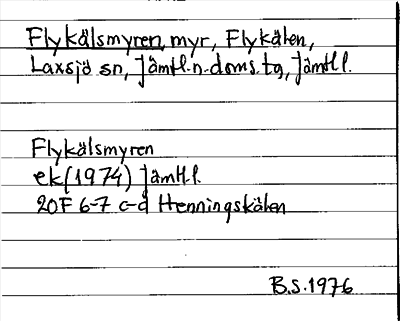 Flykälsmyren, myr, Flykälen,
Laxsjö sn, Jämtl.n.doms.tg, Jämtl l.
Flykälsmyren
ek (1974) Jämtl.l.
20F 6-7 c-d Henningskälen
B.S. 1976